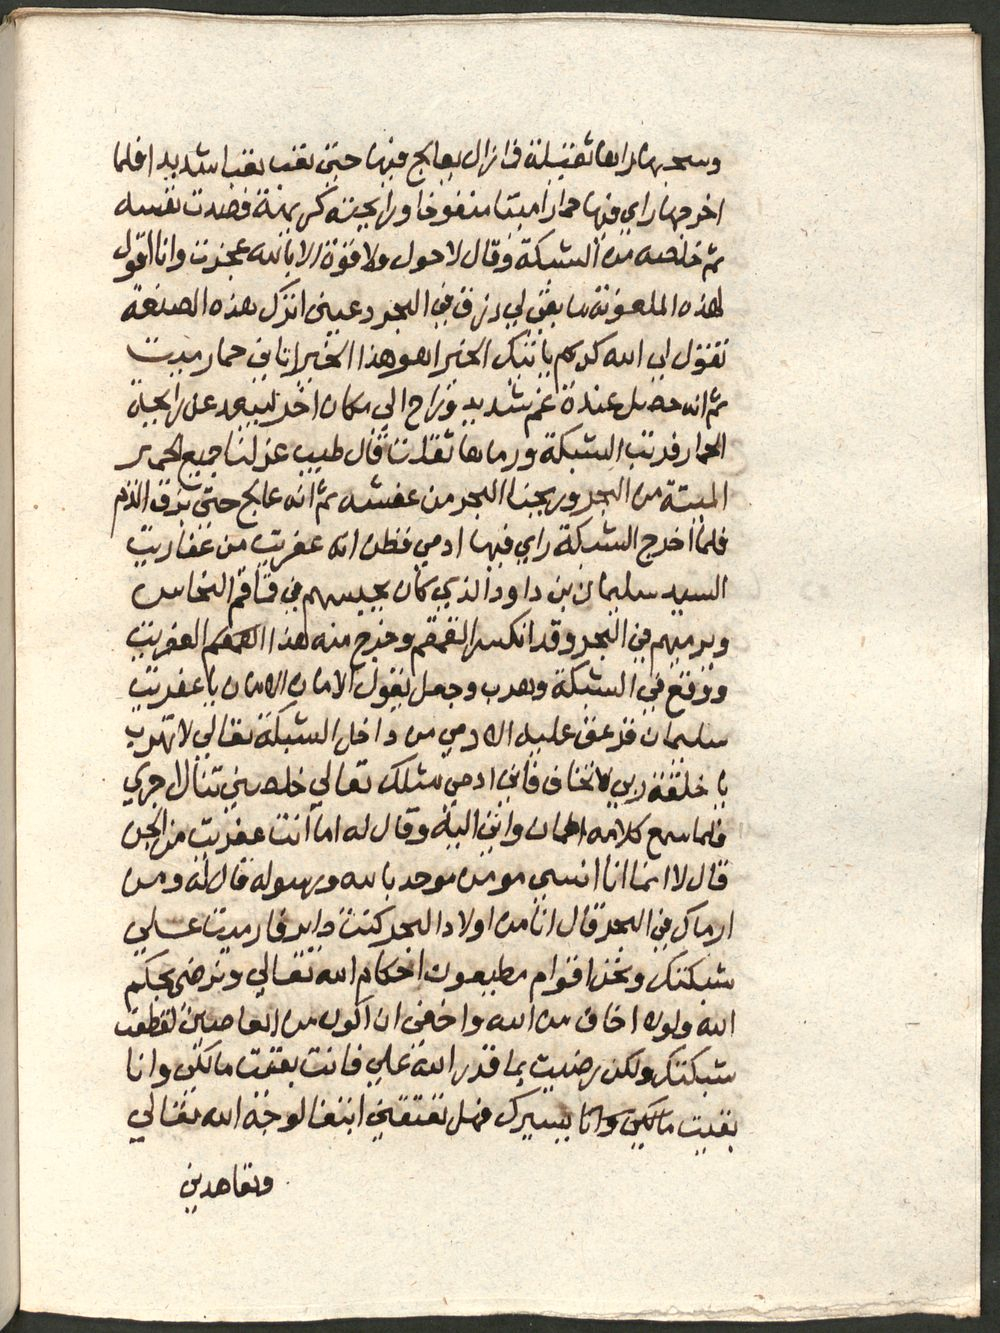 وسحبها راها ثقيلة فما زال يعالج فيها حتى تعب تعبا شديدا فلما
اخرجها راي فيها حمارا ميتا منفوخا ورايحته كريهة فصدت نفسه
ثم خلصه من الشبكة وقال لا حول ولا قوة الا بالله عجزت وانا اقول
لهذه الملعونة ما بقي لي رزق في البحر دعيني اترك هذه الصنعة
تقول لي الله كريم ياتيك الخير اهو هذا الخير اتاني حمار ميت
ثم انه حصل عنده غم شديد وراح الي مكان اخر ليبعد عن رايحة
الحمار فرتب الشبكة ورماها ثقلت قال طيب عزلنا جميع الحمير
الميتة من البحر وريحنا البحر من عفشه ثم انه عالج حتى بزق الدم
فلما اخرج الشبكة راي فيها ادمي فظن انه عفريت من عفاريت
السيد سليمان بن داود الذي كان يحبسهم في قماقم النحاس
ويرميهم في البحر وقد انكسر القمقم وخرج منه هذا القمقم العفريت
ووقع في الشبكة وهرب وجعل يقول الامان الامان يا عفريت
سليمان فزعق عليه الادمي من داخل الشبكة تعالي لا تهرب
يا خلقة ربي لا تخاف فاني ادمي مثلك تعالي خلصني تنال اجري
فلما سمع كلامه اطمان واتي اليه وقال له اما انت عفريت من الجن
قال لا انما انا انسي مومن موحد بالله ورسوله قال له ومن
ارماك في البحر قال انا من اولاد البحر كنت داير فارميت علي
شبكتك ونحن اقوام مطيعون احكام الله تعالي ونرضي بحكم
الله ولولا اخاف من الله واخشي ان اكون من العاصين لقطعت
شبكتك ولكن رضيت بما قدر الله علي فانت بقيت مالكي وانا
بقيت مالكي وانا يسيرك فهل تعتقني ابتغا لوجه الله تعالي
وتعاهدني